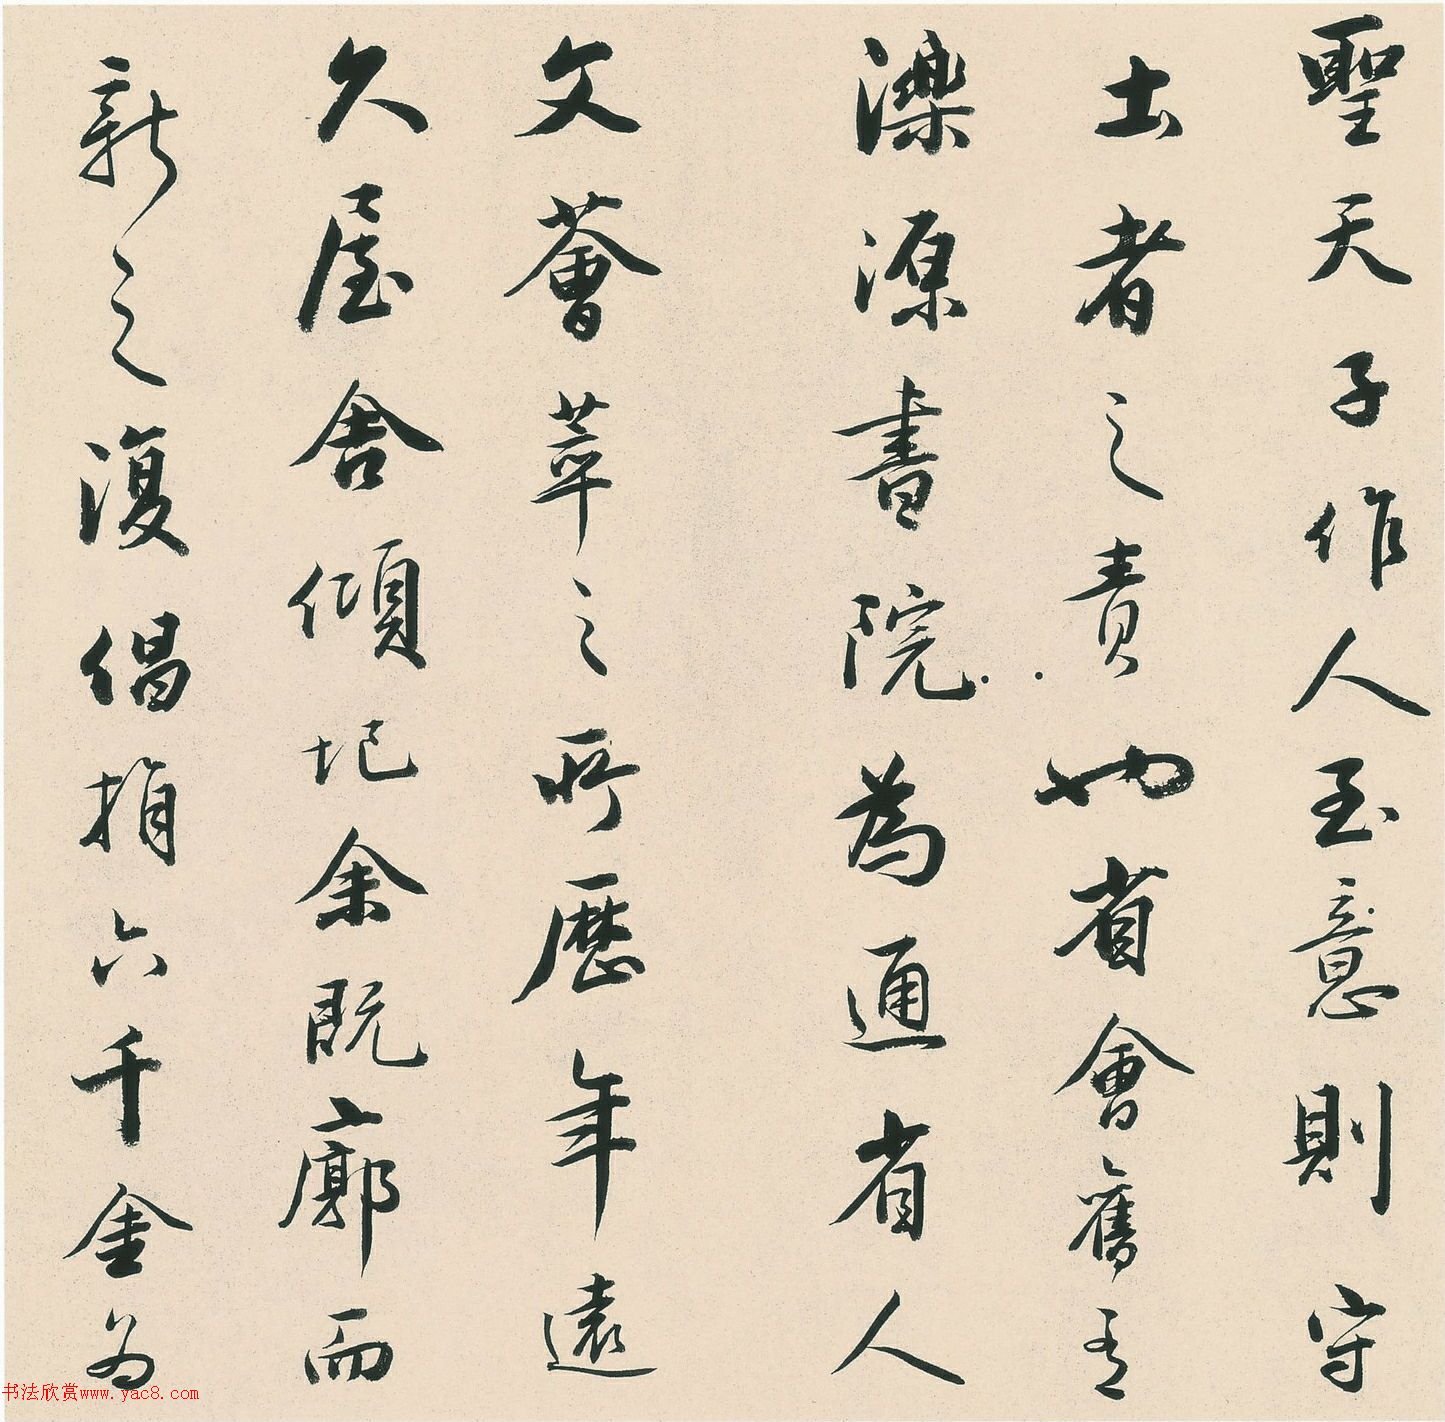 聖天子作人至意則守
土者之責也省會舊有
濼源書院為通省人
文薈萃之所歷年遠
久屋舍傾圮余既廓而
新之復倡捐六千金為
书法欣赏www.yac8.com